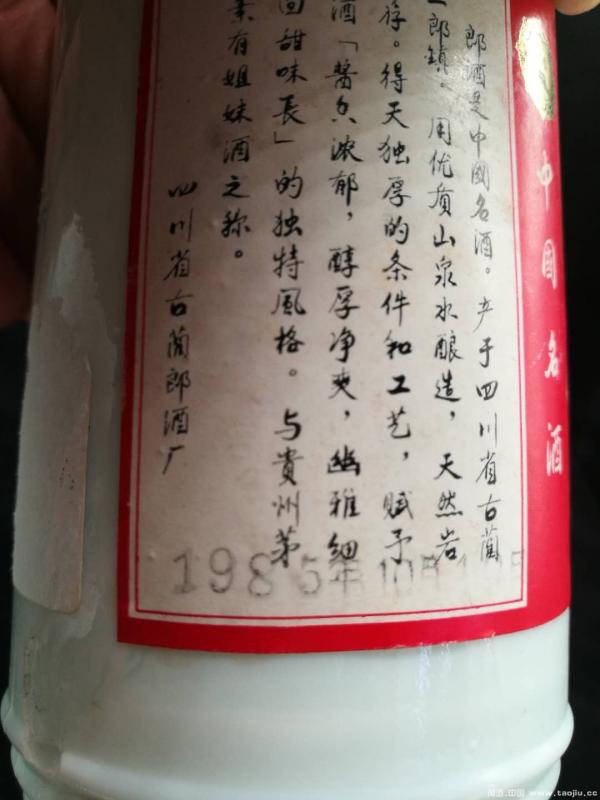 中國名酒
郎酒是中國名酒。产于四川省古藺
郎鎮。用优質山泉水酿造，天然岩
存。得天独厚的条件和工艺，赋予
酒「醬香浓郁，醇厚净爽，幽雅細
回甜味長」的独特風格。与貴州茅
有姐妹酒之称。
四川省古藺郎酒厂
1985年10月
www.taojiu.cc